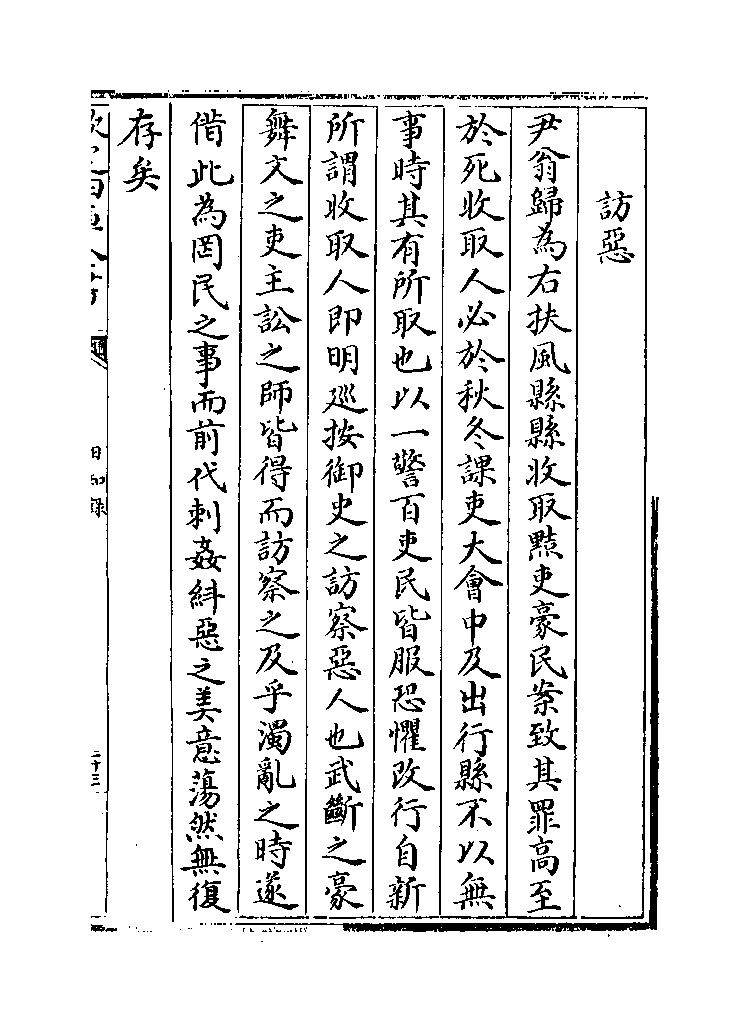 訪惡
尹翁歸為右扶風縣縣收取黠吏豪民案致其罪高至
於死收取人必於秋冬課吏大會中及出行縣不以無
事時其有所取也以一警百吏民皆服恐懼改行自新
所謂收取人即明廵按御史之訪察惡人也武斷之豪
舞文之吏主訟之師皆得而訪察之及乎濁亂之時遂
借此為罔民之事而前代刺姦糾惡之美意蕩然無復
存矣
日知錄
二十三